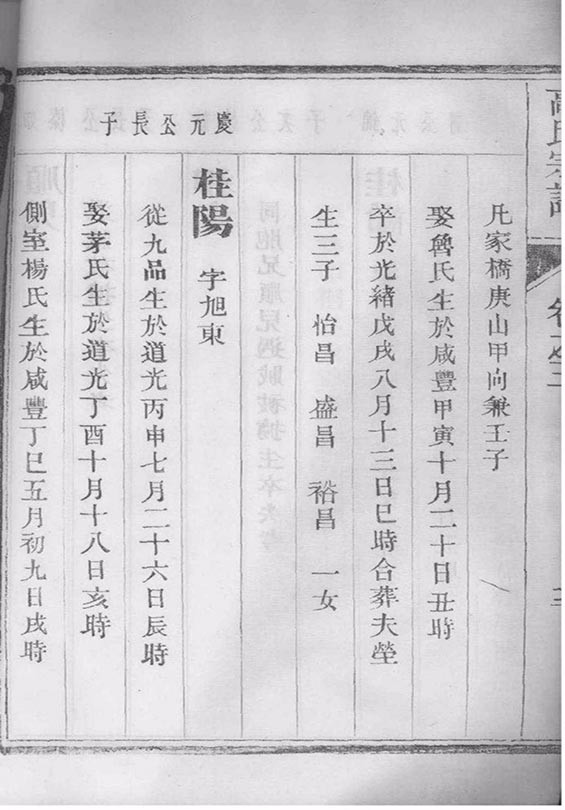 高氏宗譜
卷之三
凡家橋庚山甲向兼壬子
娶魯氏生於咸豐甲寅十月二十日丑時
卒於光緒戊戌八月十三日巳時合葬夫塋
生三子 怡昌 盛昌 裕昌 一女
慶元公長子
桂陽 字旭東
從九品生於道光丙申七月二十六日辰時
娶茅氏生於道光丁酉十月十八日亥時
側室楊氏生於咸豐丁巳五月初九日戌時